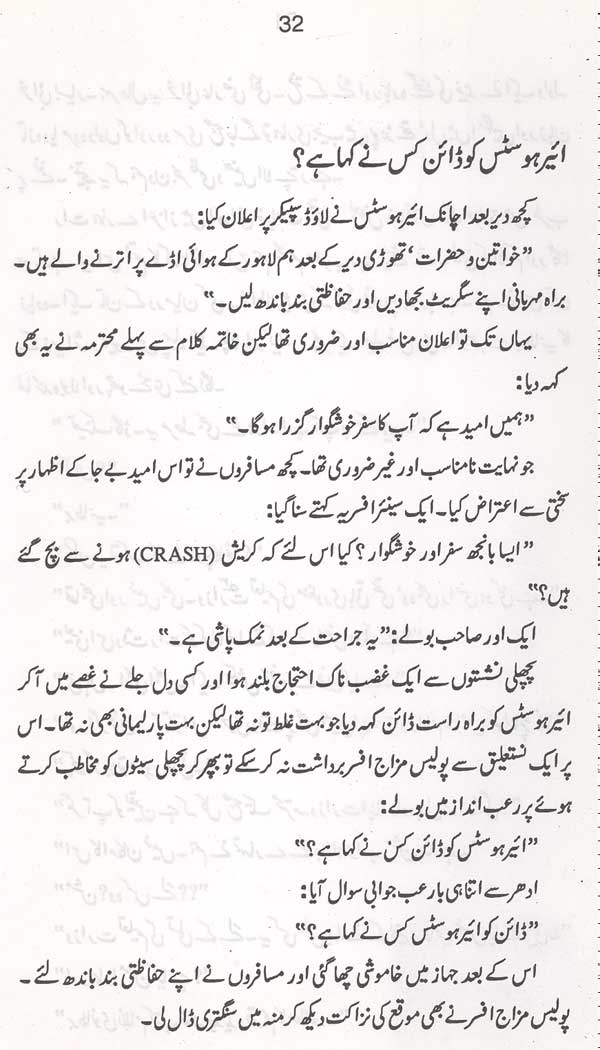 32
ائیر ہوسٹس کو ڈائن کس نے کہا ہے؟
کچھ دیر بعد اچانک ائیر ہوسٹس نے لاؤڈ سپیکر پر اعلان کیا:
”خواتین و حضرات‘ تھوڑی دیر کے بعد ہم لاہور کے ہوائی اڈے پر اترنے والے ہیں۔
براہ مہربانی اپنے سگریٹ بجھا دیں اور حفاظتی بند باندھ لیں۔“
یہاں تک تو اعلان مناسب اور ضروری تھا لیکن خاتمہ کلام سے پہلے محترمہ نے یہ بھی
کہہ دیا:
”ہمیں امید ہے کہ آپ کا سفر خوشگوار گزرا ہوگا۔“
جو نہایت نامناسب اور غیر ضروری تھا۔ کچھ مسافروں نے تو اس امید بے جا کے اظہار پر
سختی سے اعتراض کیا۔ ایک سینئر افسر یہ کہتے سنا گیا:
”ایسا بانجھ سفر اور خوشگوار؟ کیا اس لئے کہ کریش (CRASH) ہونے سے بچ گئے
ہیں؟“
ایک اور صاحب بولے: ”یہ جراحت کے بعد نمک پاشی ہے۔“
پچھلی نشستوں سے ایک غضب ناک احتجاج بلند ہوا اور کسی دل جلے نے غصے میں آ کر
ائیر ہوسٹس کو براہ راست ڈائن کہہ دیا جو بہت غلط تو نہ تھا لیکن بہت پارلیمانی بھی نہ تھا۔ اس
پر ایک نستعلیق سے پولیس مزاج افسر برداشت نہ کر سکے تو بپھر کر پچھلی سیٹوں کو مخاطب کرتے
ہوئے پر رعب انداز میں بولے:
”ائیر ہوسٹس کو ڈائن کس نے کہا ہے؟“
ادھر سے اتنا ہی بارعب جوابی سوال آیا:
”ڈائن کو ائیر ہوسٹس کس نے کہا ہے؟“
اس کے بعد جہاز میں خاموشی چھا گئی اور مسافروں نے اپنے حفاظتی بند باندھ لئے۔
پولیس مزاج افسر نے بھی موقع کی نزاکت دیکھ کر منہ میں سنگتری ڈال لی۔